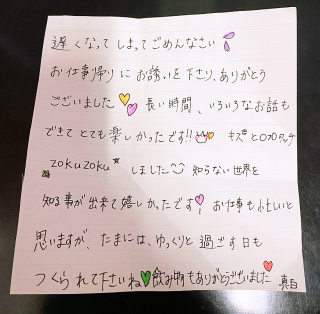 遅くなってしまってごめんなさい
お仕事帰りにお誘いを下さり、ありがとう
ございました 長い時間、いろいろなお話も
できてとても楽しかったです!! キスとロフロタッチ
zokuzoku しました 知らない世界を
知る事が出来て嬉しかったです! お仕事も忙しいと
思いますが、たまには、ゆっくりと過ごす日も
つくられて下さいね 飲み物もありがとうございました 真白